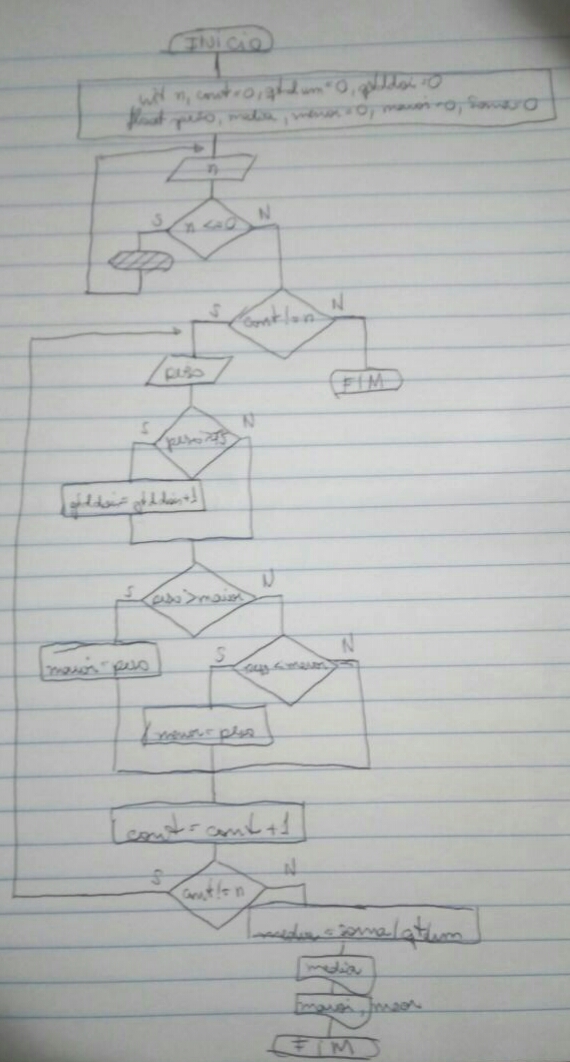 INICIO
int n, cont=0, qtdum=0, qtddois=0
float peso, media, menor=0, maior=0, soma=0
n
n <=0
S N
cont!=n
S N
peso
FIM
peso>75
S N
qtddois=qtddois+1
peso>maior
S N
maior=peso
peso<menor
S N
menor=peso
cont = cont +1
cont!=n
S N
media=soma/qtdum
media
maior, menor
FIM